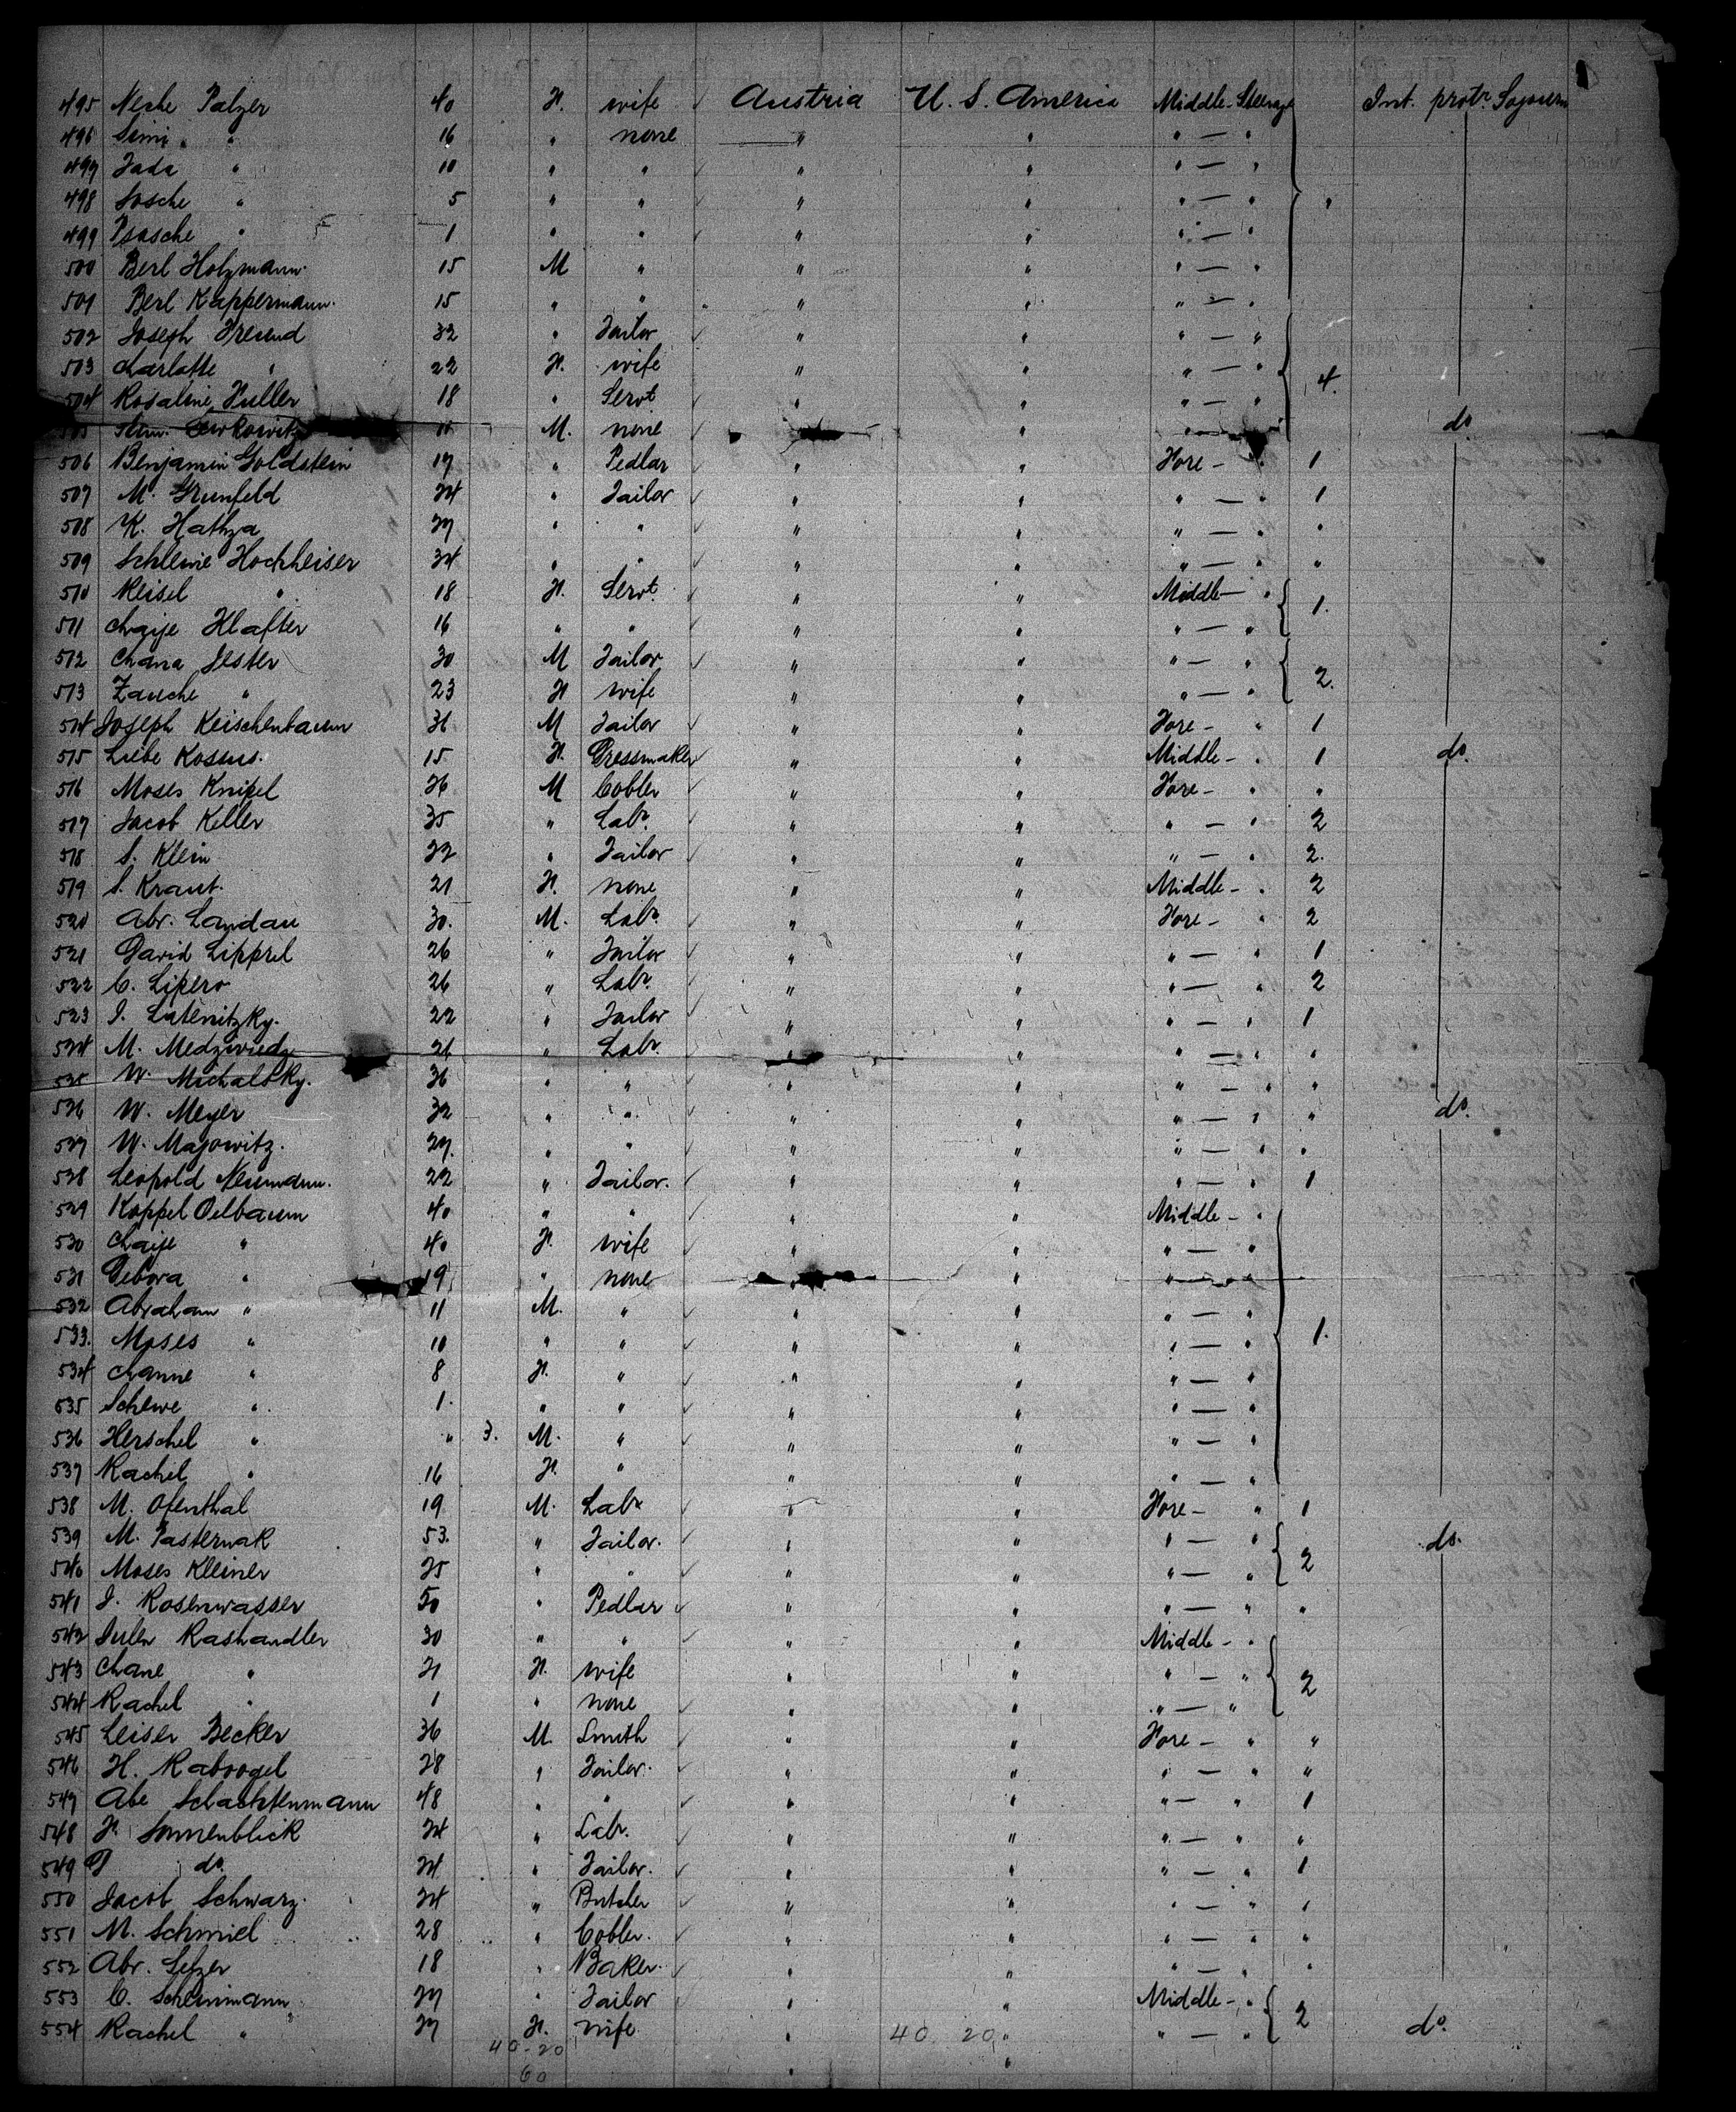 495 Neshe Palzer 40 F. wife Austria U. S. America Middle-Steerage Int. protr. Sojourn
496 Simi " 16 " none " " " — "
497 Jada " 10 " " " " " — "
498 Sosche " 5 " " " " " — " "
499 " 1 " " " " " — "
500 Berl Holzmann. 15 M " " " " — "
501 Berl Kappermann. 15 " " " " " — "
502 Joseph Freund 32 " Tailor " " " — "
503 Charlotte " 22 F. wife " " " — " 4.
504 Rosaline Fuller 18 " Servt " " " — "
505 M. none " " do
506 Benjamin Goldstein 17 " Pedlar " " Fore - " 1
507 M. Grunfeld 24 " Tailor " " " — " 1
508 K. Hathza 27 " " " " " — " "
509 Schleme Hochheiser 34 " " " " " — " "
510 Reisel " 18 F. Servt. " " Middle — " 1.
511 Chaije Klafter 16 " " " " " — "
512 Chana Jester 30 M Tailor " " " — " 2.
513 Zauche " 23 F wife " " " — "
514 Joseph Keischenbaum 31 M Tailor " " Fore - " 1
515 Liebe Kossus. 15 F. Dressmaker " " Middle - " 1 do.
516 Moses Knipel 26 M Cobler " " Fore - " "
517 Jacob Keller 35 " Labr. " " " — " 2
518 S. Klein 22 " Tailor " " " — " 2.
519 S. Kraut. 21 F. none " " Middle - " 2
520 Abr. Landau 30. M. Labr. " " Fore - " 2
521 David Lippel 26 " Tailor " " " — " 1
522 C. Lipero 26 " Labr. " " " — " 2
523 I. Latenitzky. 22 " Tailor " " " — " 1
524 M. Medzwiedz 21 " Labr. " " " — " "
525 W. Michalsky. 36 " " " " " — " "
526 W. Meyer 32 " " " " " — " " do.
527 W. Majowitz. 27. " " " " " — " "
528 Leopold Neumann. 22 " Tailor. " " " — " 1
529 Koppel Oelbaum 40 " " " " Middle - "
530 Chaije " 40 F. wife " " " — "
531 Debora " 19 " none " " — "
532 Abraham " 11 M. " " " " — "
533. Moses " 10 " " " " " — " 1.
534 Channe " 8 F. " " " " — "
535 Schewe " 1. " " " " " — "
536 Herschel " " 3. M. " " " " — "
537 Rachel " 16 F. " " " " — "
538 M. Ofenthal 19 M. Labr " " Fore - " 1
539 M. Pasternak 53. " Tailor. " " " — " do.
540 Moses Kleiner 25 " " " " " — " 2
541 J. Rosenwasser 50 " Pedlar " " " — " "
542 Rashandler 30 " " " " Middle - "
543 Chane " 21 F. wife " " " — " 2
544 Rachel " 1 " none " " " — "
545 Leiser Becker 36 M. Smith " " Fore - " "
546 H. Rabvogel 28 " Tailor. " " " — " "
547 Abe Schachtenmann 48 " " " " " — " 1
548 F. Sonnenblick 24 " Labr. " " " — " "
549 G do. 24 " Tailor. " " " — " 1
550 Jacob Schwarz. 24 " Butcher " " " — " "
551 M. Schmiel 28 " Cobler. " " " — " "
552 Abr. Selzer 18 " Baker. " " " — " "
553 C. Scheinmann. 27 " Tailor " " Middle - " 2
554 Rachel " 27 F. wife " 40 20 " " — " do.
40-20 " "
60